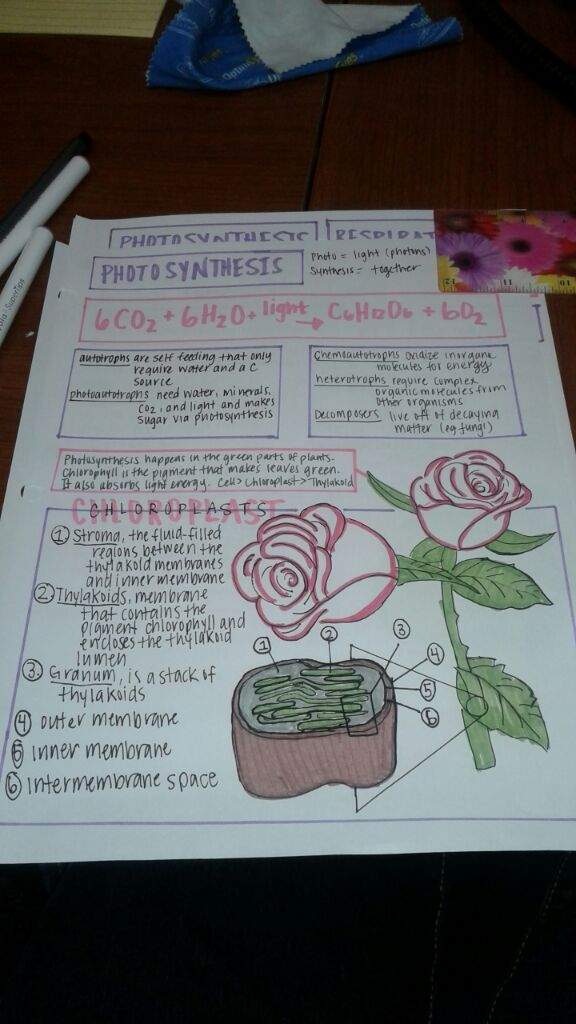 PHOTOSYNTHESIS RESPIRAT
PHOTOSYNTHESIS
Photo = light (photons)
Synthesis = together
6CO2 + 6H2O + light → C6H12O6 + 6O2
autotrophs are self feeding that only
require water and a C
source
photoautotrophs need water, minerals,
CO2, and light and makes
sugar via photosynthesis
Chemoautotrophs oxidize inorganic
molecules for energy
heterotrophs require complex
organic molecules from
other organisms
Decomposers live off of decaying
matter (eg fungi)
Photosynthesis happens in the green parts of plants.
Chlorophyll is the pigment that makes leaves green.
It also absorbs light energy. Cell > Chloroplast > Thylakoid
CHLOROPLASTS
① Stroma, the fluid-filled
regions between the
thylakoid membranes
and inner membrane
② Thylakoids, membrane
that contains the
pigment chlorophyll and
encloses the thylakoid
lumen
③. Granum, is a stack of
thylakoids
④ outer membrane
⑤ inner membrane
⑥ intermembrane space
① ② ③
④
⑤
⑥
12 11 10